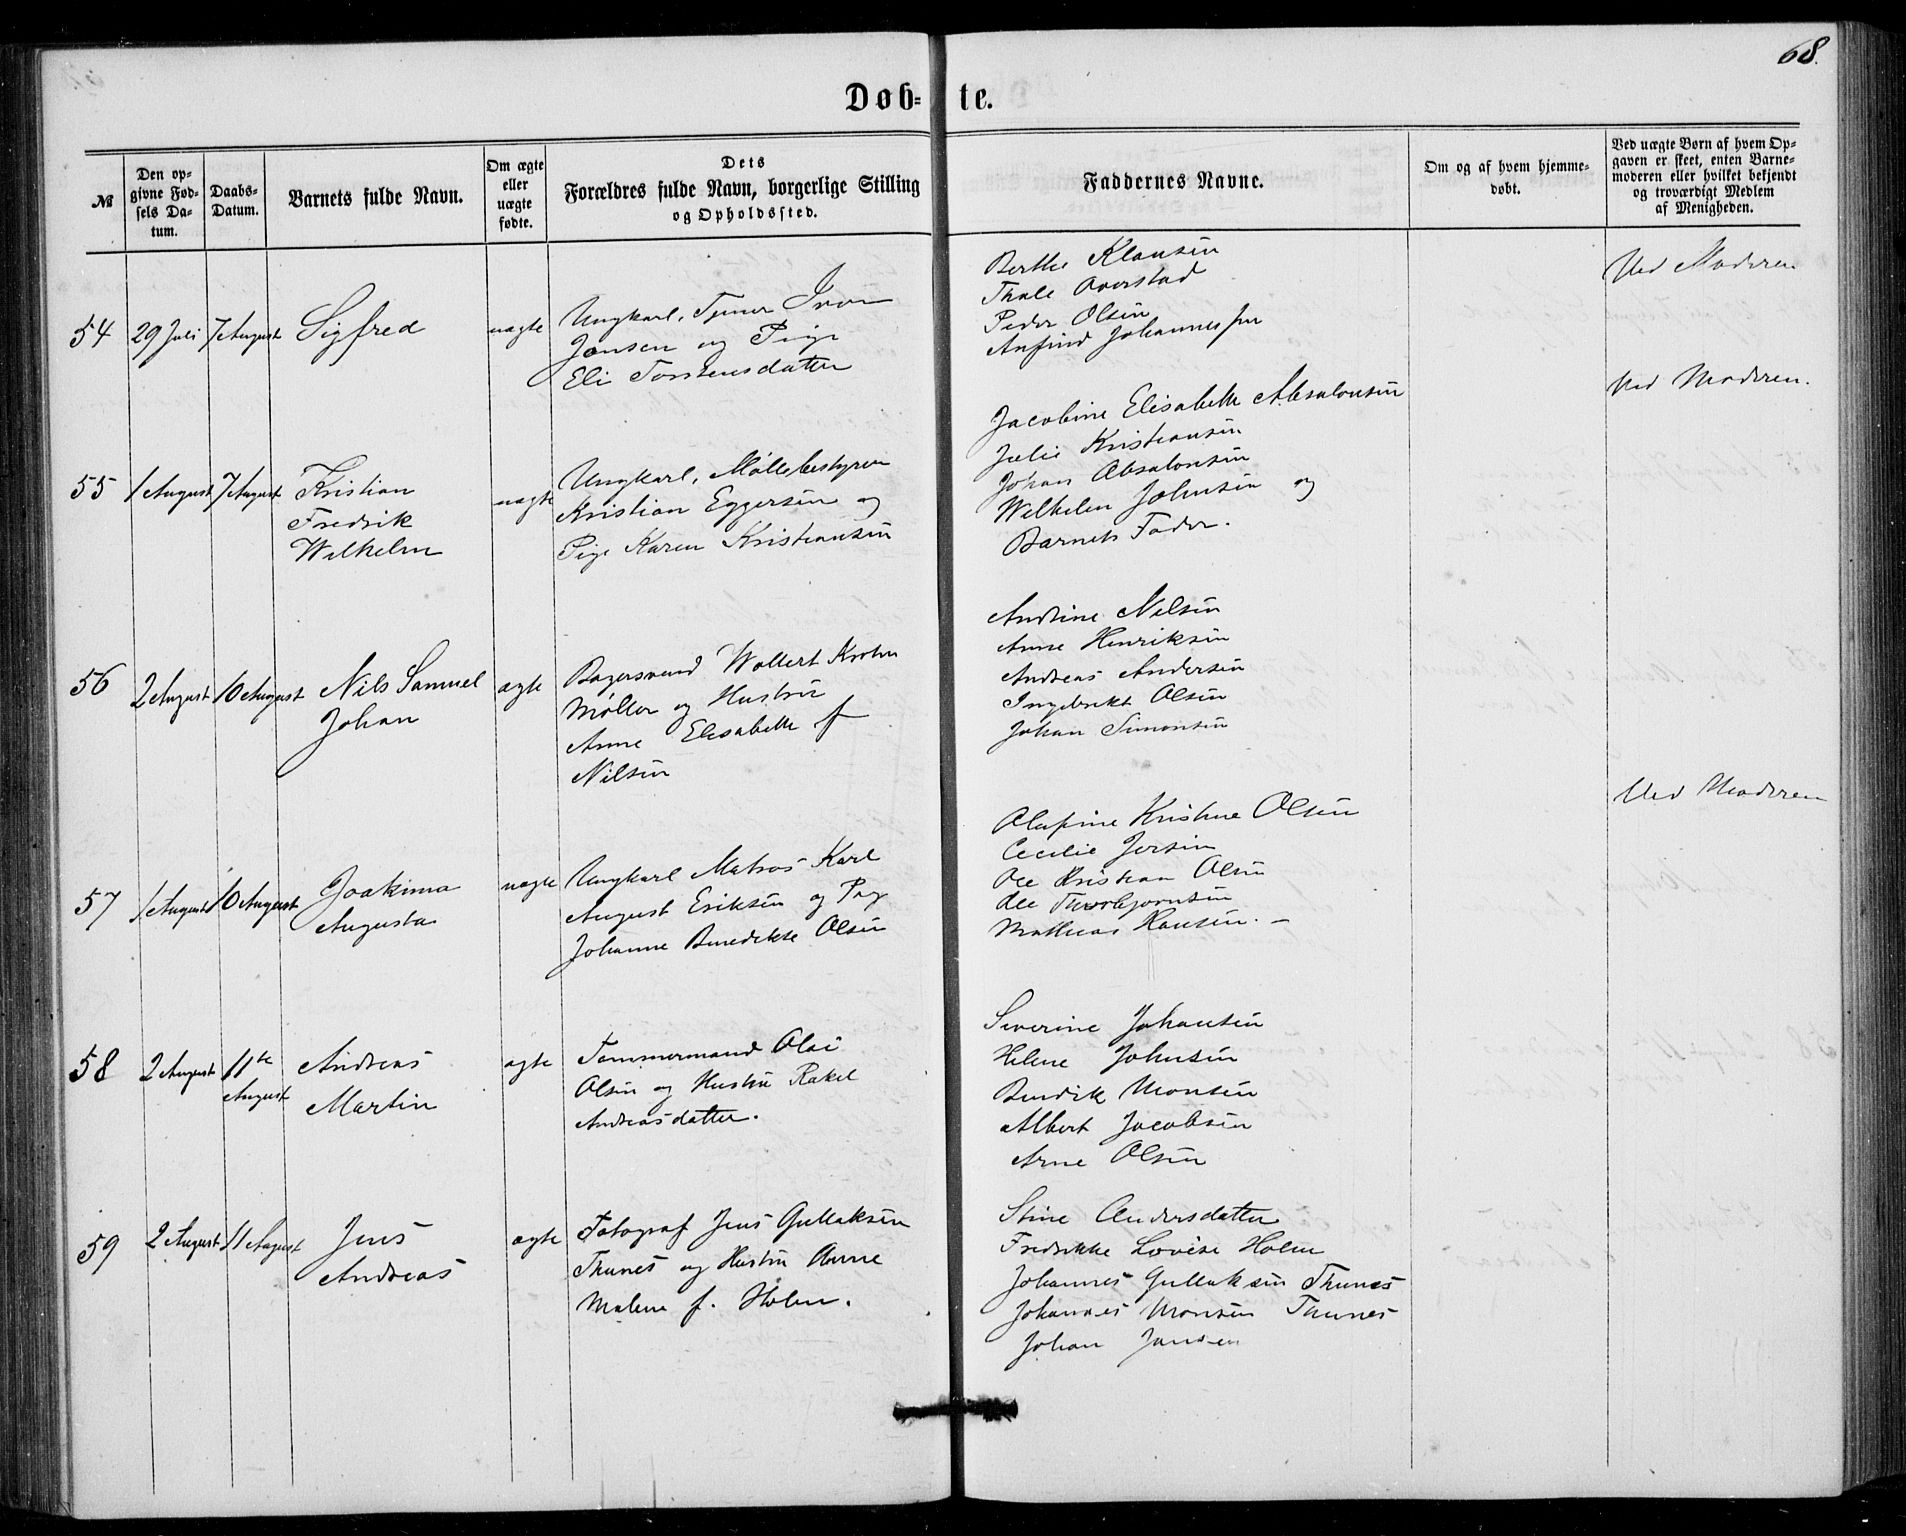 68.
Døb-te.
№
Den opgivne Fødsels Datum.
Daabs-Datum.
Barnets fulde Navn.
Om ægte eller uægte fødte.
Dets
Forældres fulde Navn, borgerlige Stilling
og Opholdssted.
Faddernes Navne.
Om og af hvem hjemmedøbt.
Ved uægte Børn af hvem Opgaven er skeet, enten Barnemoderen eller hvilket bekjendt og troværdigt Medlem af Menigheden.
54 29 Juli 7 August Sigfred uægte
Ungkarl, Tjener Iver
Jansen og Pige
Eli Torstensdatter
Berthe Klausen
Thale Overstad
Peder Olsen
Anfind Johannessen
Ved Moderen
55 1 August 7 August Kristian
Fredrik
Wilhelm
uægte
Ungkarl, Møllebestyrer
Kristian Eggersen og
Pige Karen Kristiansen
Jacobine Elisabeth Absalonsen
Julie Kristiansen
Johan Absalonsen
Wilhelm Johnsen og
Barnets Fader.
Ved Moderen.
56 2 August 10 August Nils Samuel
Johan
ægte
Bagersvend Wollert Krohn
Møller og Hustru
Anne Elisabeth f
Nilsen
Andrine Nilsen
Anne Henriksen
Andreas Andersen
Ingebrikt Olsen
Johan Simonsen
57 1 August 10 August Joakima
Augusta
uægte
Ungkarl Matros Karl
August Eriksen og Pige
Johanne Benedikte Olsen
Olufine Kristine Olsen
Cecilie Jersin
Ole Kristian Olsen
Ole Thorbjørnsen
Mathias Hansen. -
Ved Moderen
58 2 August 11te
August
Andreas
Martin
ægte
Tømmermand Olai
Olsen og Hustru Rakel
Andreasdatter.
Severine Johansen
Helene Johnsen
Bendik Monsen
Albert Jacobsen
Arne Olsen
59 2 August 11 August Jens
Andreas
ægte
Fotograf Jens Gullaksen
Thunes og Hustru Anne
Malene f. Holm.
Stine Andersdatter
Fredrikke Lovise Holm
Johannes Gullaksen Thunes
Johannes Monsen Thunes
Johan Jansen